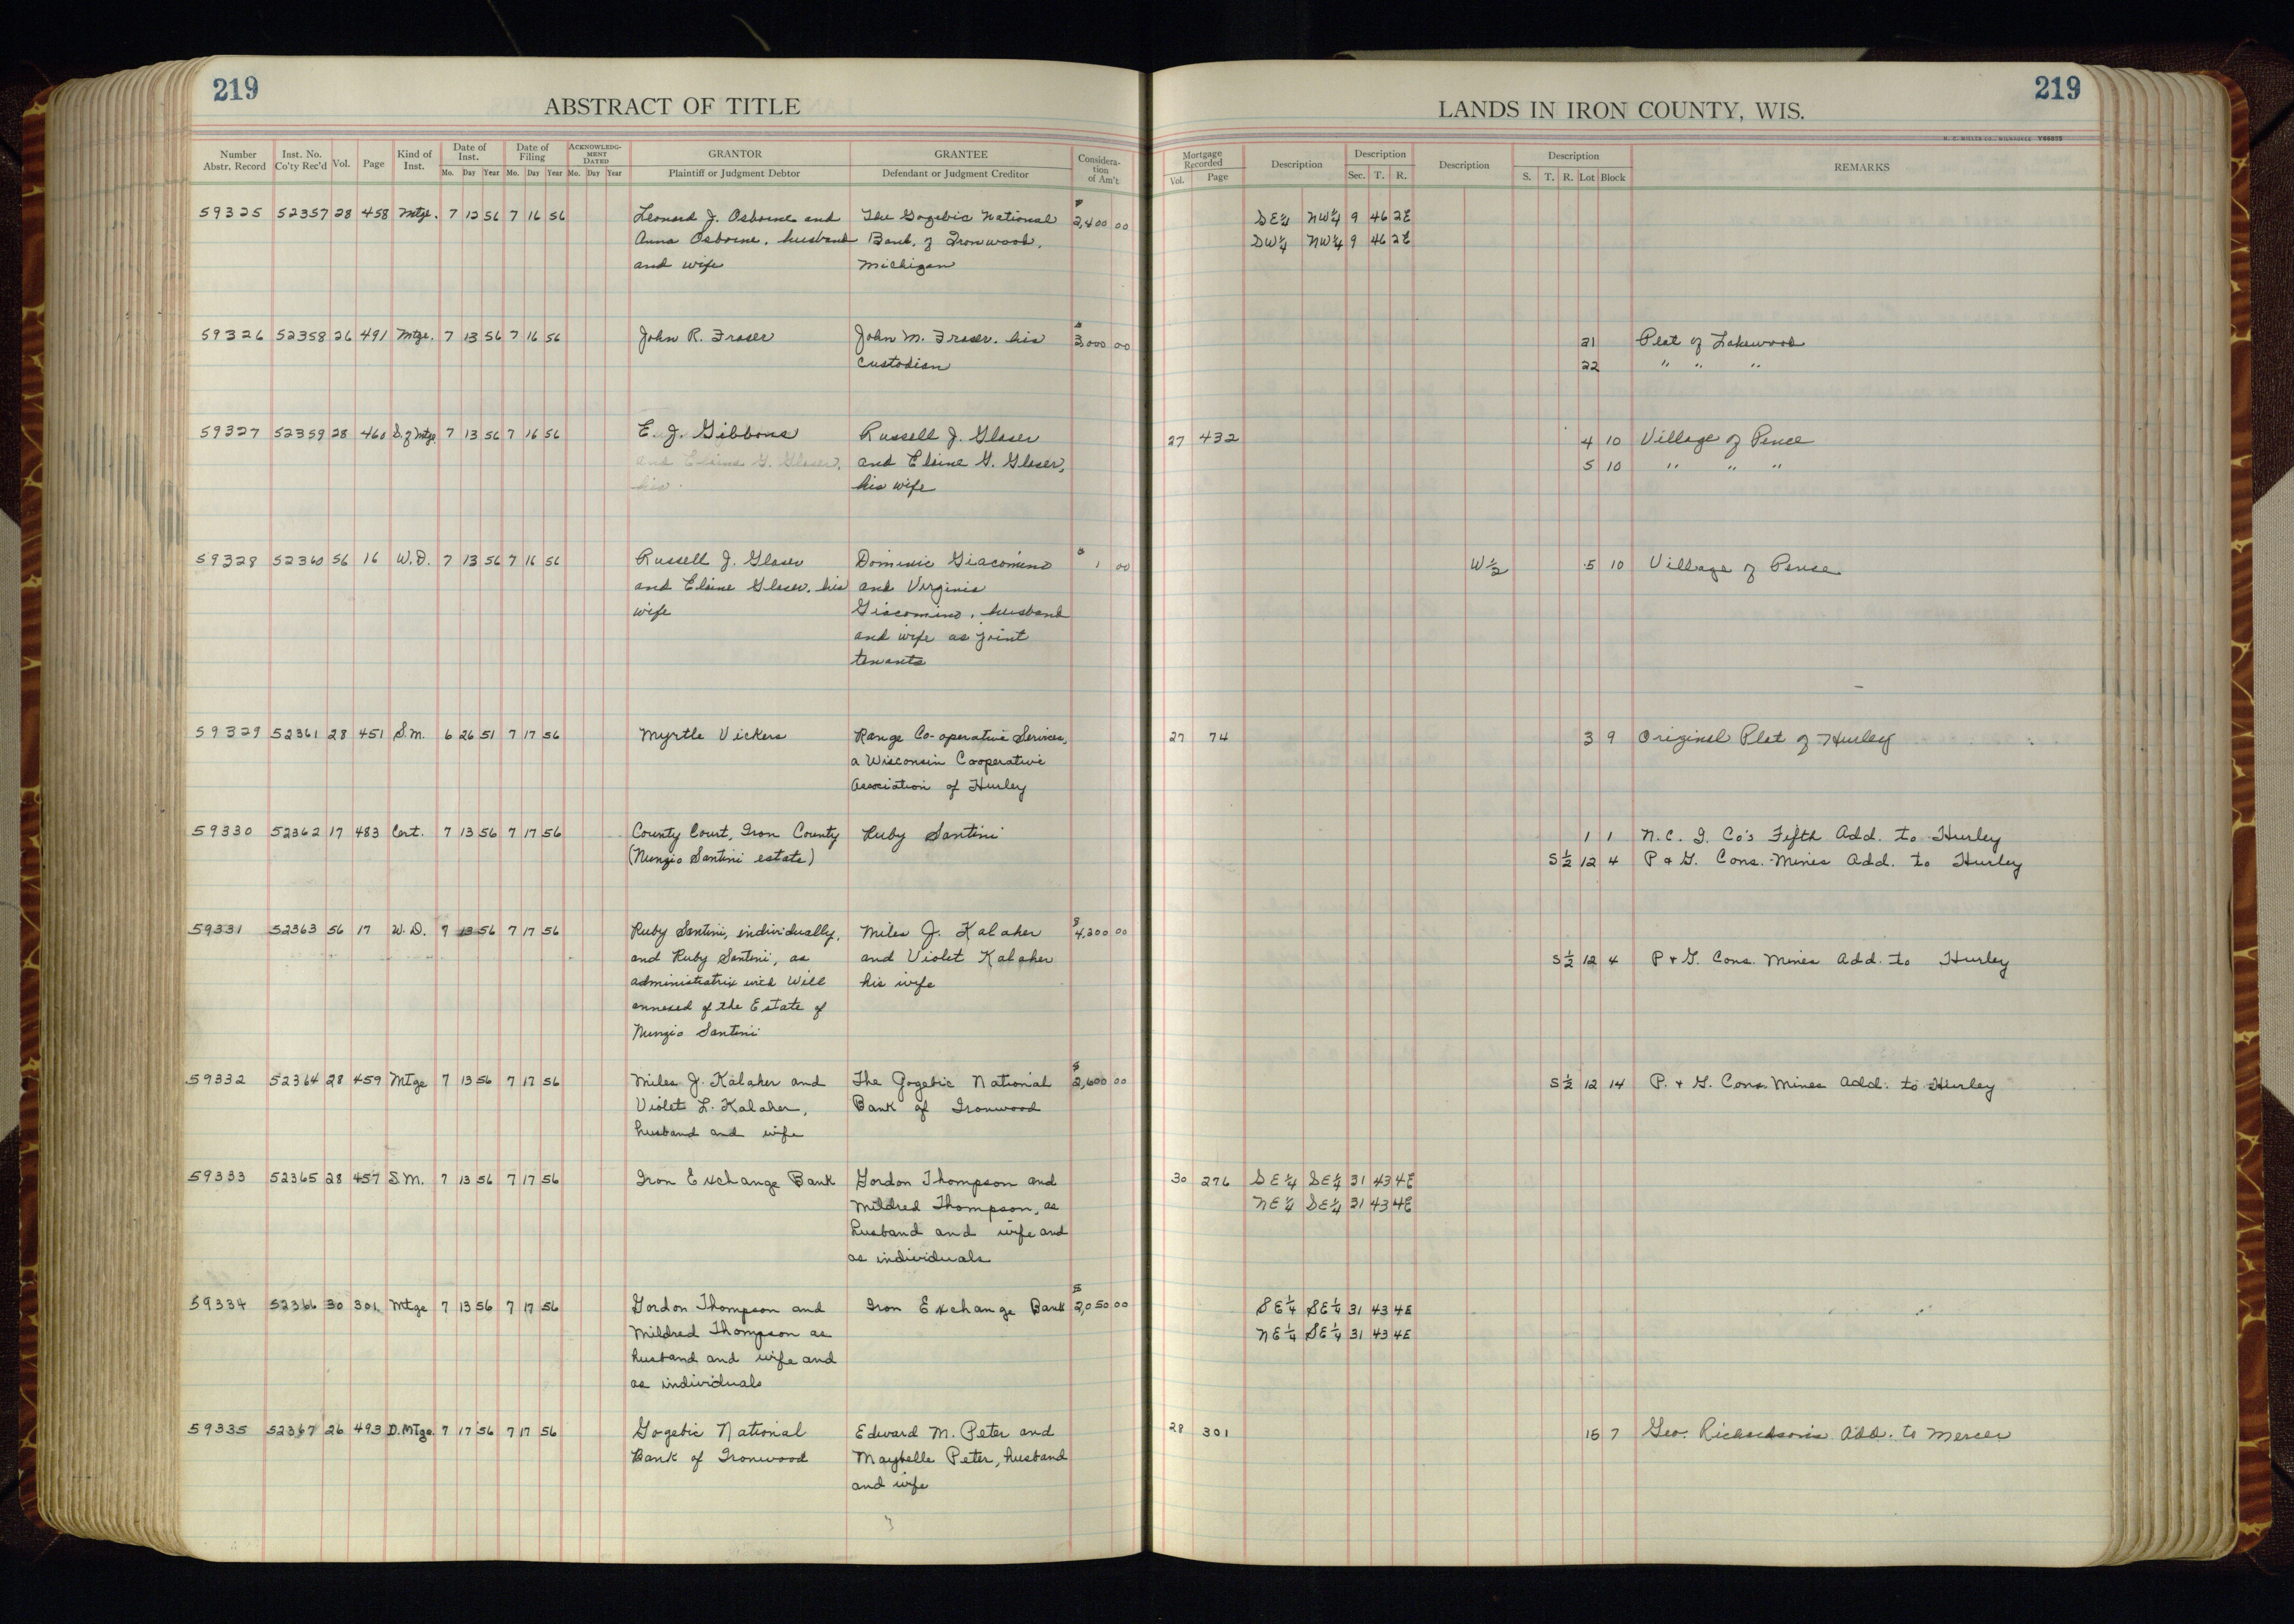 219
ABSTRACT OF TITLE
Number Abstr. Record | Inst. No. Co'ty Rec'd | Vol. | Page | Kind of Inst. | Date of Inst. Mo. Day Year | Date of Filing Mo. Day Year | ACKNOWLEDGMENT DATED Mo. Day Year | GRANTOR Plaintiff or Judgment Debtor | GRANTEE Defendant or Judgment Creditor | Consideration of Am't
LANDS IN IRON COUNTY, WIS.
219
H. C. MILLER CO., MILWAUKEE Y86855
Mortgage Recorded Vol. Page | Description | Description Sec. T. R. | Description | Description S. T. R. Lot Block | REMARKS
59325 52357 28 458 Mtge. 7 12 56 7 16 56 Leonard J. Osborne and The Gogebic National $2,400 00 SE¼ NW¼ 9 46 2E
Anna Osborne, husband Bank of Ironwood, SW¼ NW¼ 9 46 2E
and wife Michigan
59326 52358 26 491 Mtge. 7 13 56 7 16 56 John R. Fraser John M. Fraser, his $3000 00 21 Plat of Lakewood
Custodian 22 " " "
59327 52359 28 460 S. of Mtge. 7 13 56 7 16 56 E. J. Gibbons Russell J. Glaser 27 432 4 10 Village of Pence
and Elaine G. Glaser, and Elaine G. Glaser, 5 10 " " "
his his wife
59328 52360 56 16 W.D. 7 13 56 7 16 56 Russell J. Glaser Dominic Giacomino $1 00 W½ 5 10 Village of Pence
and Elaine Glaser, his and Virginia
wife Giacomino, husband
and wife as joint
tenants
59329 52361 28 451 S.M. 6 26 51 7 17 56 Myrtle Vickers Range Co-operative Services, 27 74 3 9 Original Plat of Hurley
a Wisconsin Cooperative
Association of Hurley
59330 52362 17 483 Cert. 7 13 56 7 17 56 County Court, Iron County Ruby Santini 1 1 N. C. I. Co's Fifth Add. to Hurley
(Nunzio Santini estate) S½ 12 4 P & G. Cons. Mines Add. to Hurley
59331 52363 56 17 W.D. 7 13 56 7 17 56 Ruby Santini, individually, Miles J. Kalaher $4,300 00
and Ruby Santini, as and Violet Kalaher S½ 12 4 P + G. Cons. Mines Add. to Hurley
administratrix with Will his wife
annexed of the Estate of
Nunzio Santini
59332 52364 28 459 Mtge 7 13 56 7 17 56 Miles J. Kalaher and The Gogebic National $2,600 00 S½ 12 14 P. + G. Cons. Mines Add. to Hurley
Violet L. Kalaher, Bank of Ironwood
husband and wife
59333 52365 28 457 S.M. 7 13 56 7 17 56 Iron Exchange Bank Gordon Thompson and 30 276 SE¼ SE¼ 31 43 4E
Mildred Thompson, as NE¼ SE¼ 31 43 4E
husband and wife and
as individuals
59334 52366 30 301 Mtge 7 13 56 7 17 56 Gordon Thompson and Iron Exchange Bank $2,050 00 SE¼ SE¼ 31 43 4E
Mildred Thompson as NE¼ SE¼ 31 43 4E
husband and wife and
as individuals
59335 52367 26 493 D.Mtge. 7 17 56 7 17 56 Gogebic National Edward M. Peter and 28 301 15 7 Geo. Richardson's Add. to Mercer
Bank of Ironwood Maybelle Peter, husband
and wife